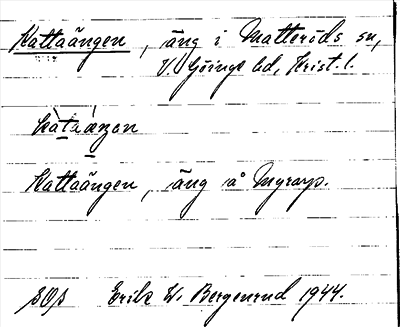 Kattaängen, äng i Matteröds sn,
V. Göinge hd, Krist. l.
Kattaängen, äng å Myrarp.
Erik W. Bergenrud 1944.